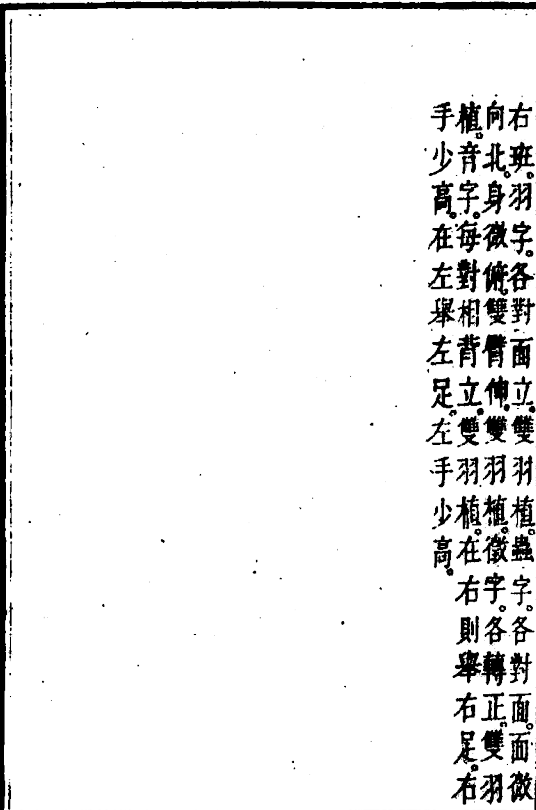 右班。羽字。各對面立。雙羽植。蟲字。各對面。面微
向北。身微俯。雙臂伸。雙羽植。徵字。各轉正。雙羽
植。音字。每對相背立。雙羽植。在右則舉右足。右
手少高。在左舉左足。左手少高。